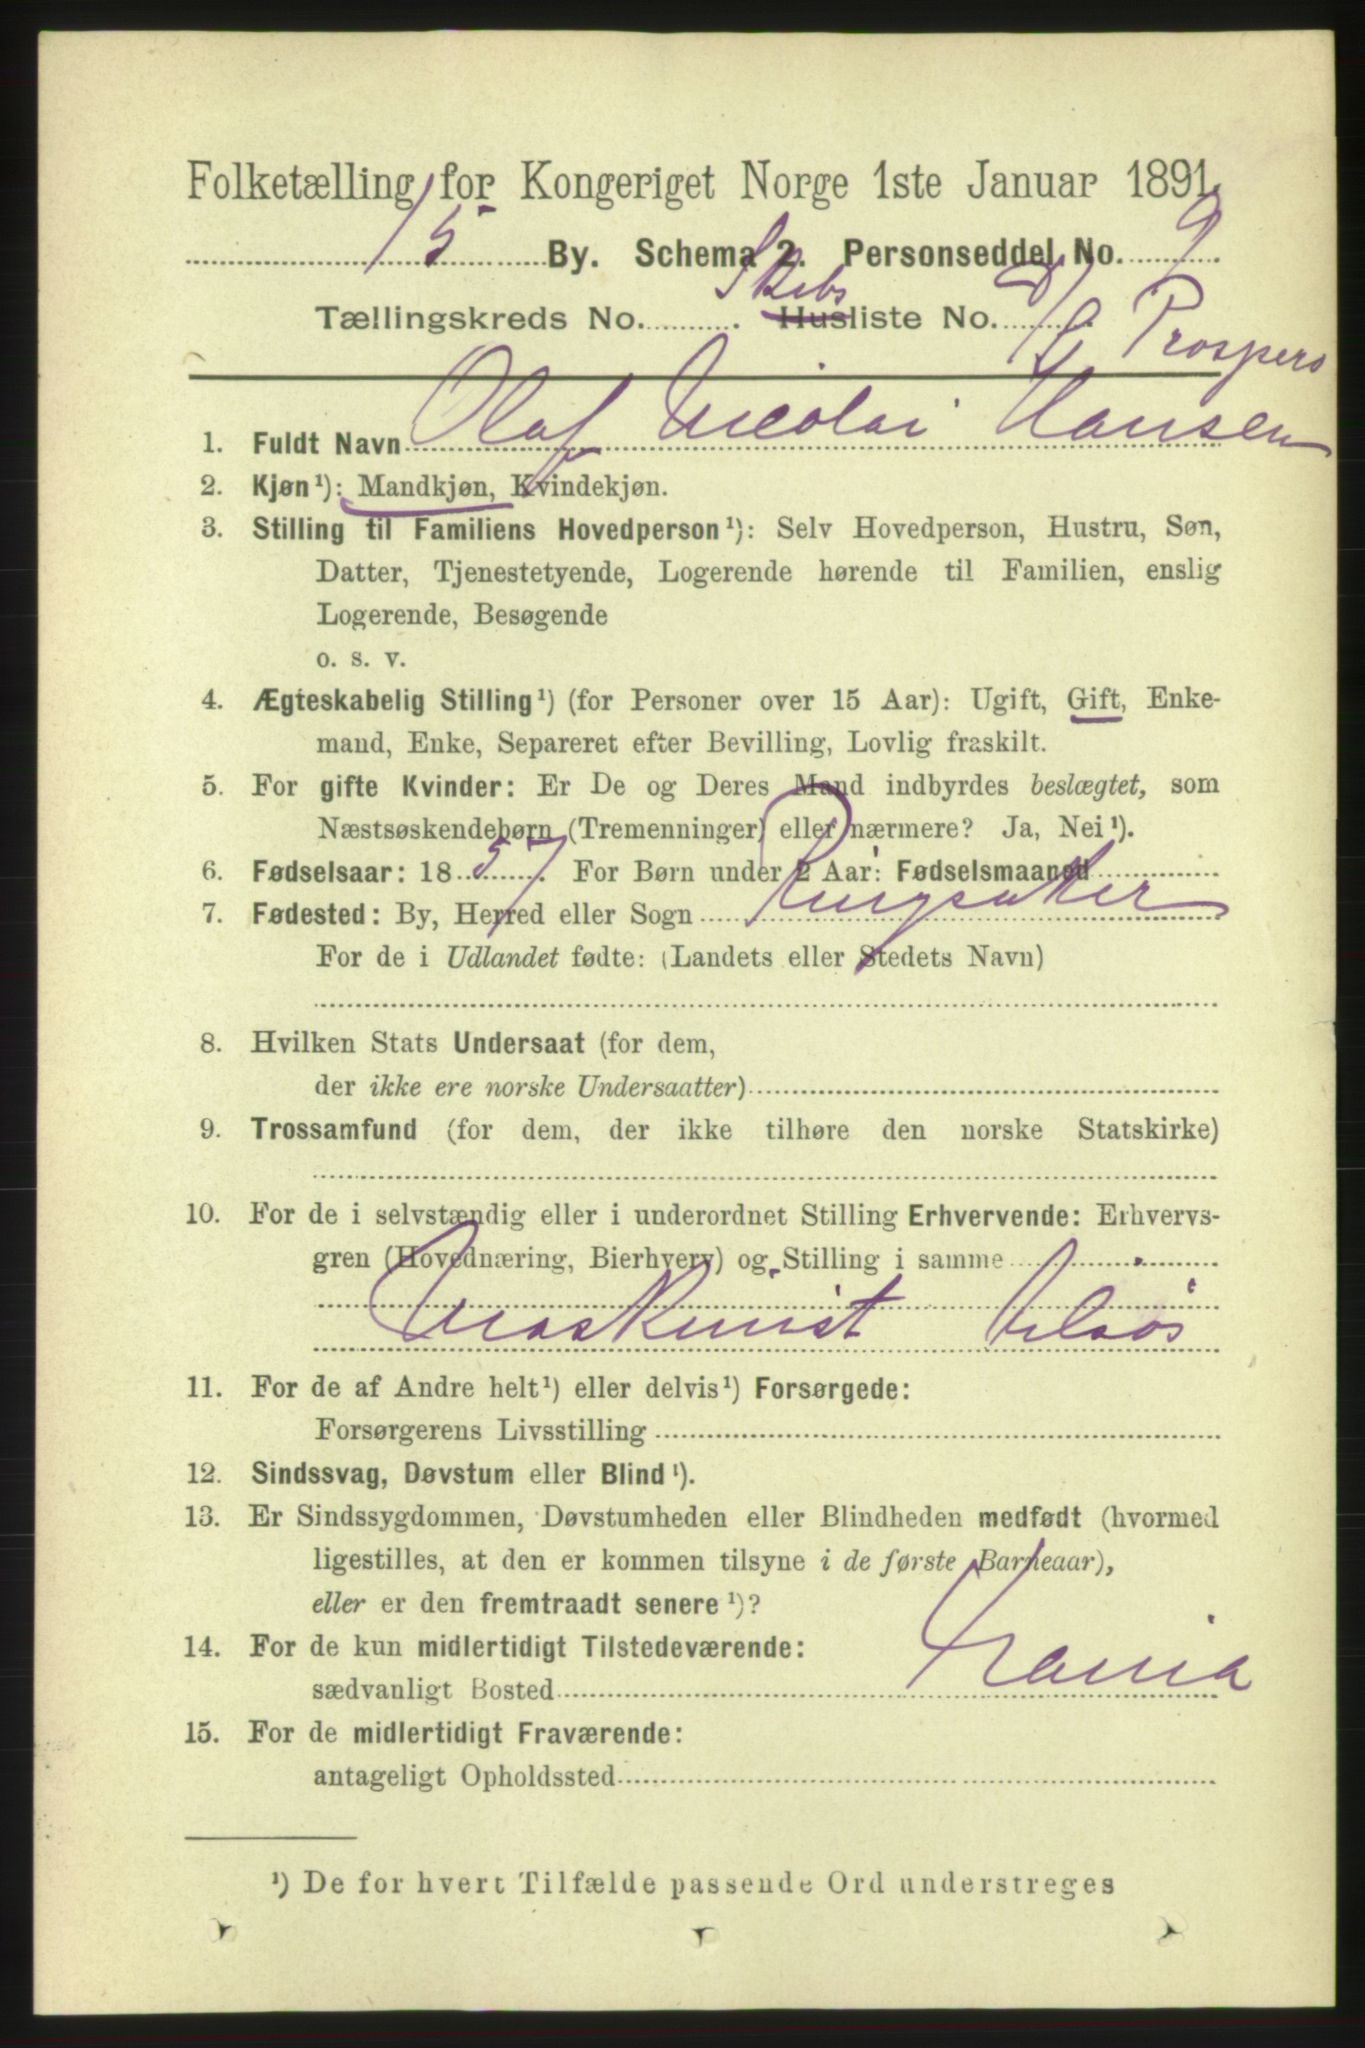 Folketælling for Kongeriget Norge 1ste Januar 1891.
15 By. Schema 2. Personseddel No. 9
Tællingskreds No. Skibs Husliste No. D/S Prospero
1. Fuldt Navn Olaf Nicolai Hansen
2. Kjøn ¹): Mandkjøn, Kvindekjøn.
3. Stilling til Familiens Hovedperson ¹): Selv Hovedperson, Hustru, Søn,
Datter, Tjenestetyende, Logerende hørende til Familien, enslig
Logerende, Besøgende
o. s. v.
4. Ægteskabelig Stilling ¹) (for Personer over 15 Aar): Ugift, Gift, Enke-
mand, Enke, Separeret efter Bevilling, Lovlig fraskilt.
5. For gifte Kvinder: Er De og Deres Mand indbyrdes beslægtet, som
Næstsøskendebørn (Tremenninger) eller nærmere? Ja, Nei ¹).
6. Fødselsaar: 1857. For Børn under 2 Aar: Fødselsmaaned
7. Fødested: By, Herred eller Sogn Ringsaker
For de i Udlandet fødte: (Landets eller Stedets Navn)
8. Hvilken Stats Undersaat (for dem,
der ikke ere norske Undersaatter)
9. Trossamfund (for dem, der ikke tilhøre den norske Statskirke)
10. For de i selvstændig eller i underordnet Stilling Erhvervende: Erhvervs-
gren (Hovednæring, Bierhverv) og Stilling i samme
Maskinist tilsøs
11. For de af Andre helt ¹) eller delvis ¹) Forsørgede:
Forsørgerens Livsstilling
12. Sindssvag, Døvstum eller Blind ¹).
13. Er Sindssygdommen, Døvstumheden eller Blindheden medfødt (hvormed
ligestilles, at den er kommen tilsyne i de første Barneaar),
eller er den fremtraadt senere ¹)?
14. For de kun midlertidigt Tilstedeværende:
sædvanligt Bosted
15. For de midlertidigt Fraværende:
antageligt Opholdssted
¹) De for hvert Tilfælde passende Ord understreges